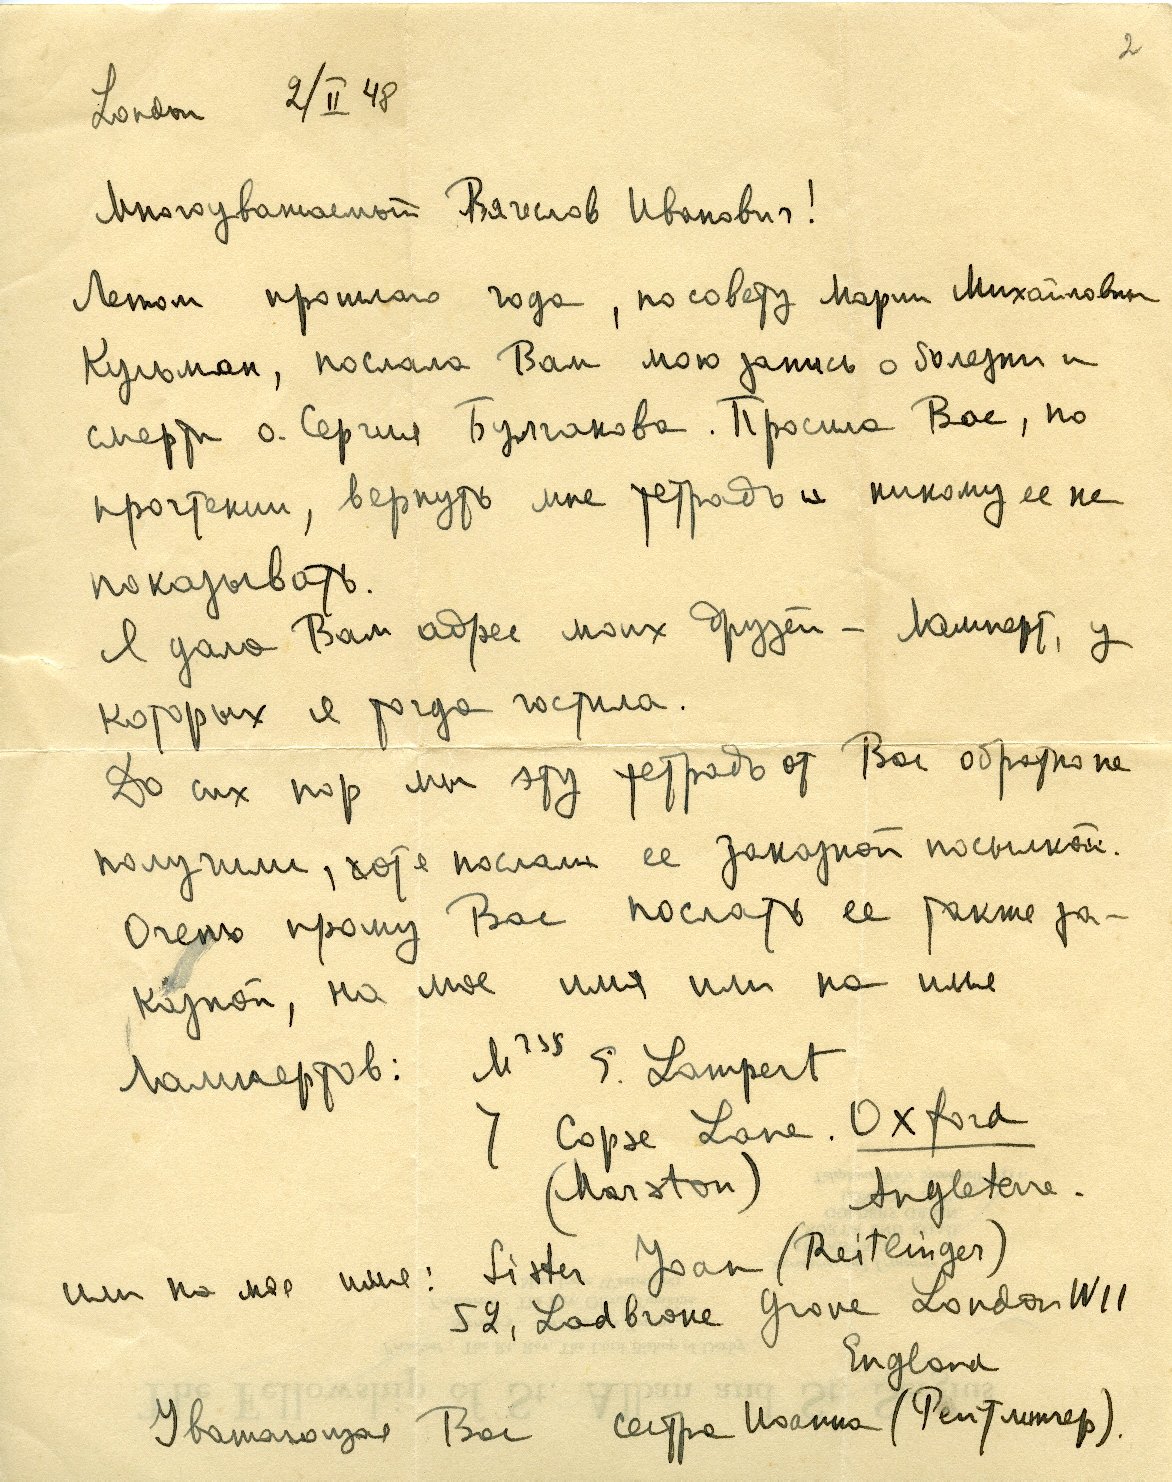 2
London 2/II 48
Многоуважаемый Вячеслав Иванович!
Летом прошлого года, по совету Марии Михайловны
Кульман, послала Вам мою запись о болезни и
смерти о. Сергия Булгакова. Просила Вас, по
прочтении, вернуть мне тетрадь и никому ее не
показывать.
Я дала Вам адрес моих друзей – Ламперт, у
которых я тогда гостила.
До сих пор мы эту тетрадь от Вас обратно не
получили, хотя послали ее заказной посылкой.
Очень прошу Вас послать ее также за-
казной, на мое имя или на имя
Лампертов: Mrss E. Lampert
7 Copse Lane. Oxford
(Marston) Angleterre.
или на мое имя: Sister Joan (Reitlinger)
52, Ladbroke Grove London W11
England
The Fellowship of St. Alban and St. Sergius
Уважающая Вас сестра Иоанна (Рейтлингер).